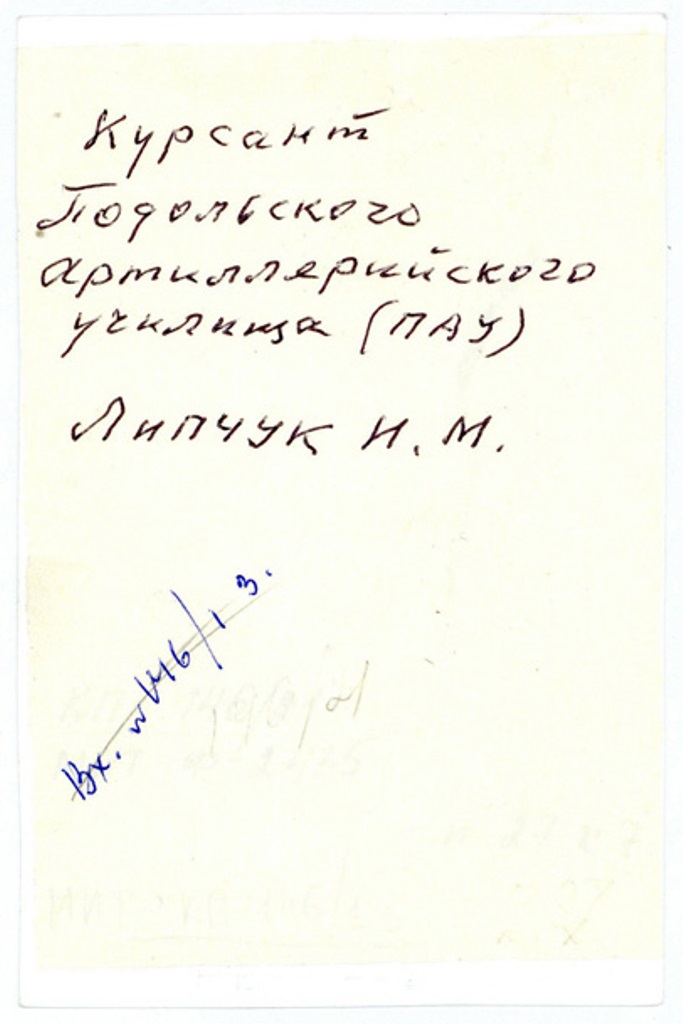 Курсант
Подольского
артиллерийского
училища (ПАУ)
Липчук И. М.
Вх.